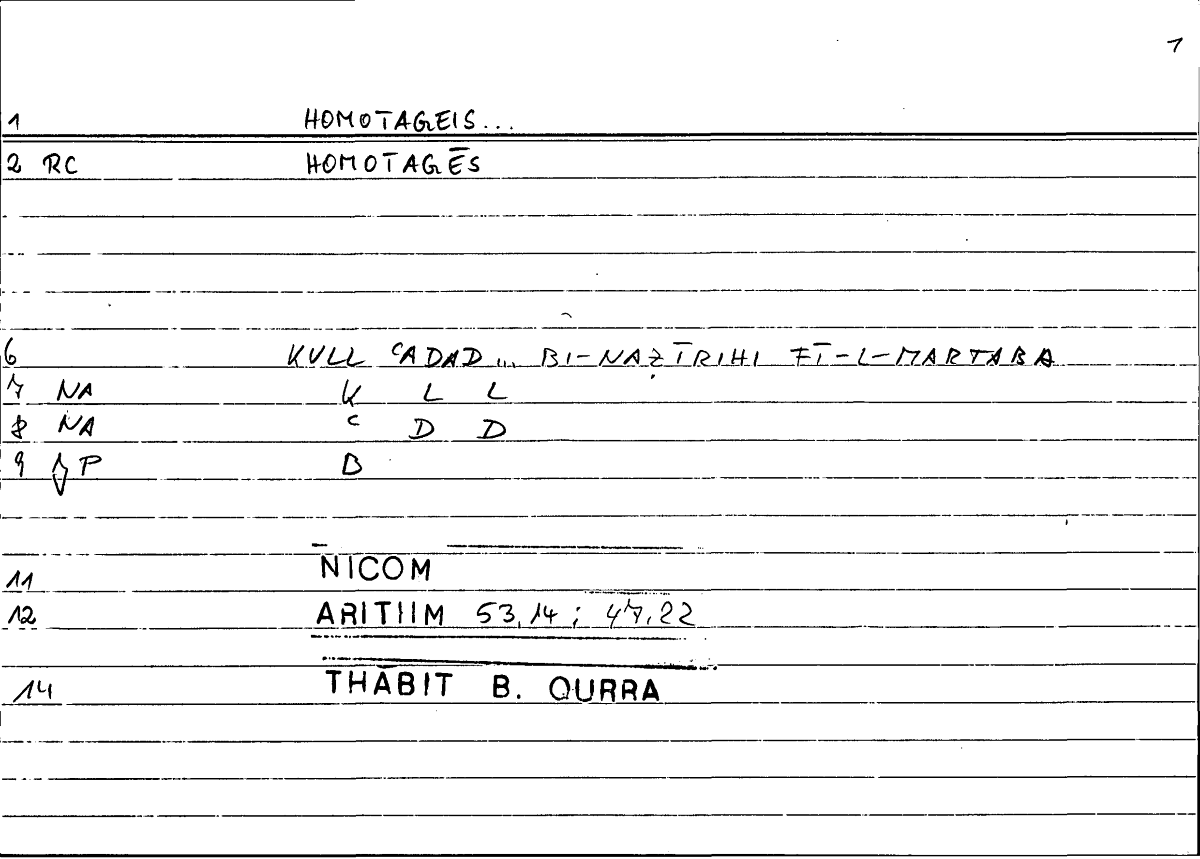 1
1 HOMOTAGEIS...
2 RC HOMOTAGĒS
6 KULL ʿADAD... BI-NAẒĪRIHI FĪ-L-MARTABA
7 NA K L L
8 NA ʿ D D
9 P B
11 NICOM
12 ARITHM 53,14; 47,22
14 THĀBIT B. QURRA